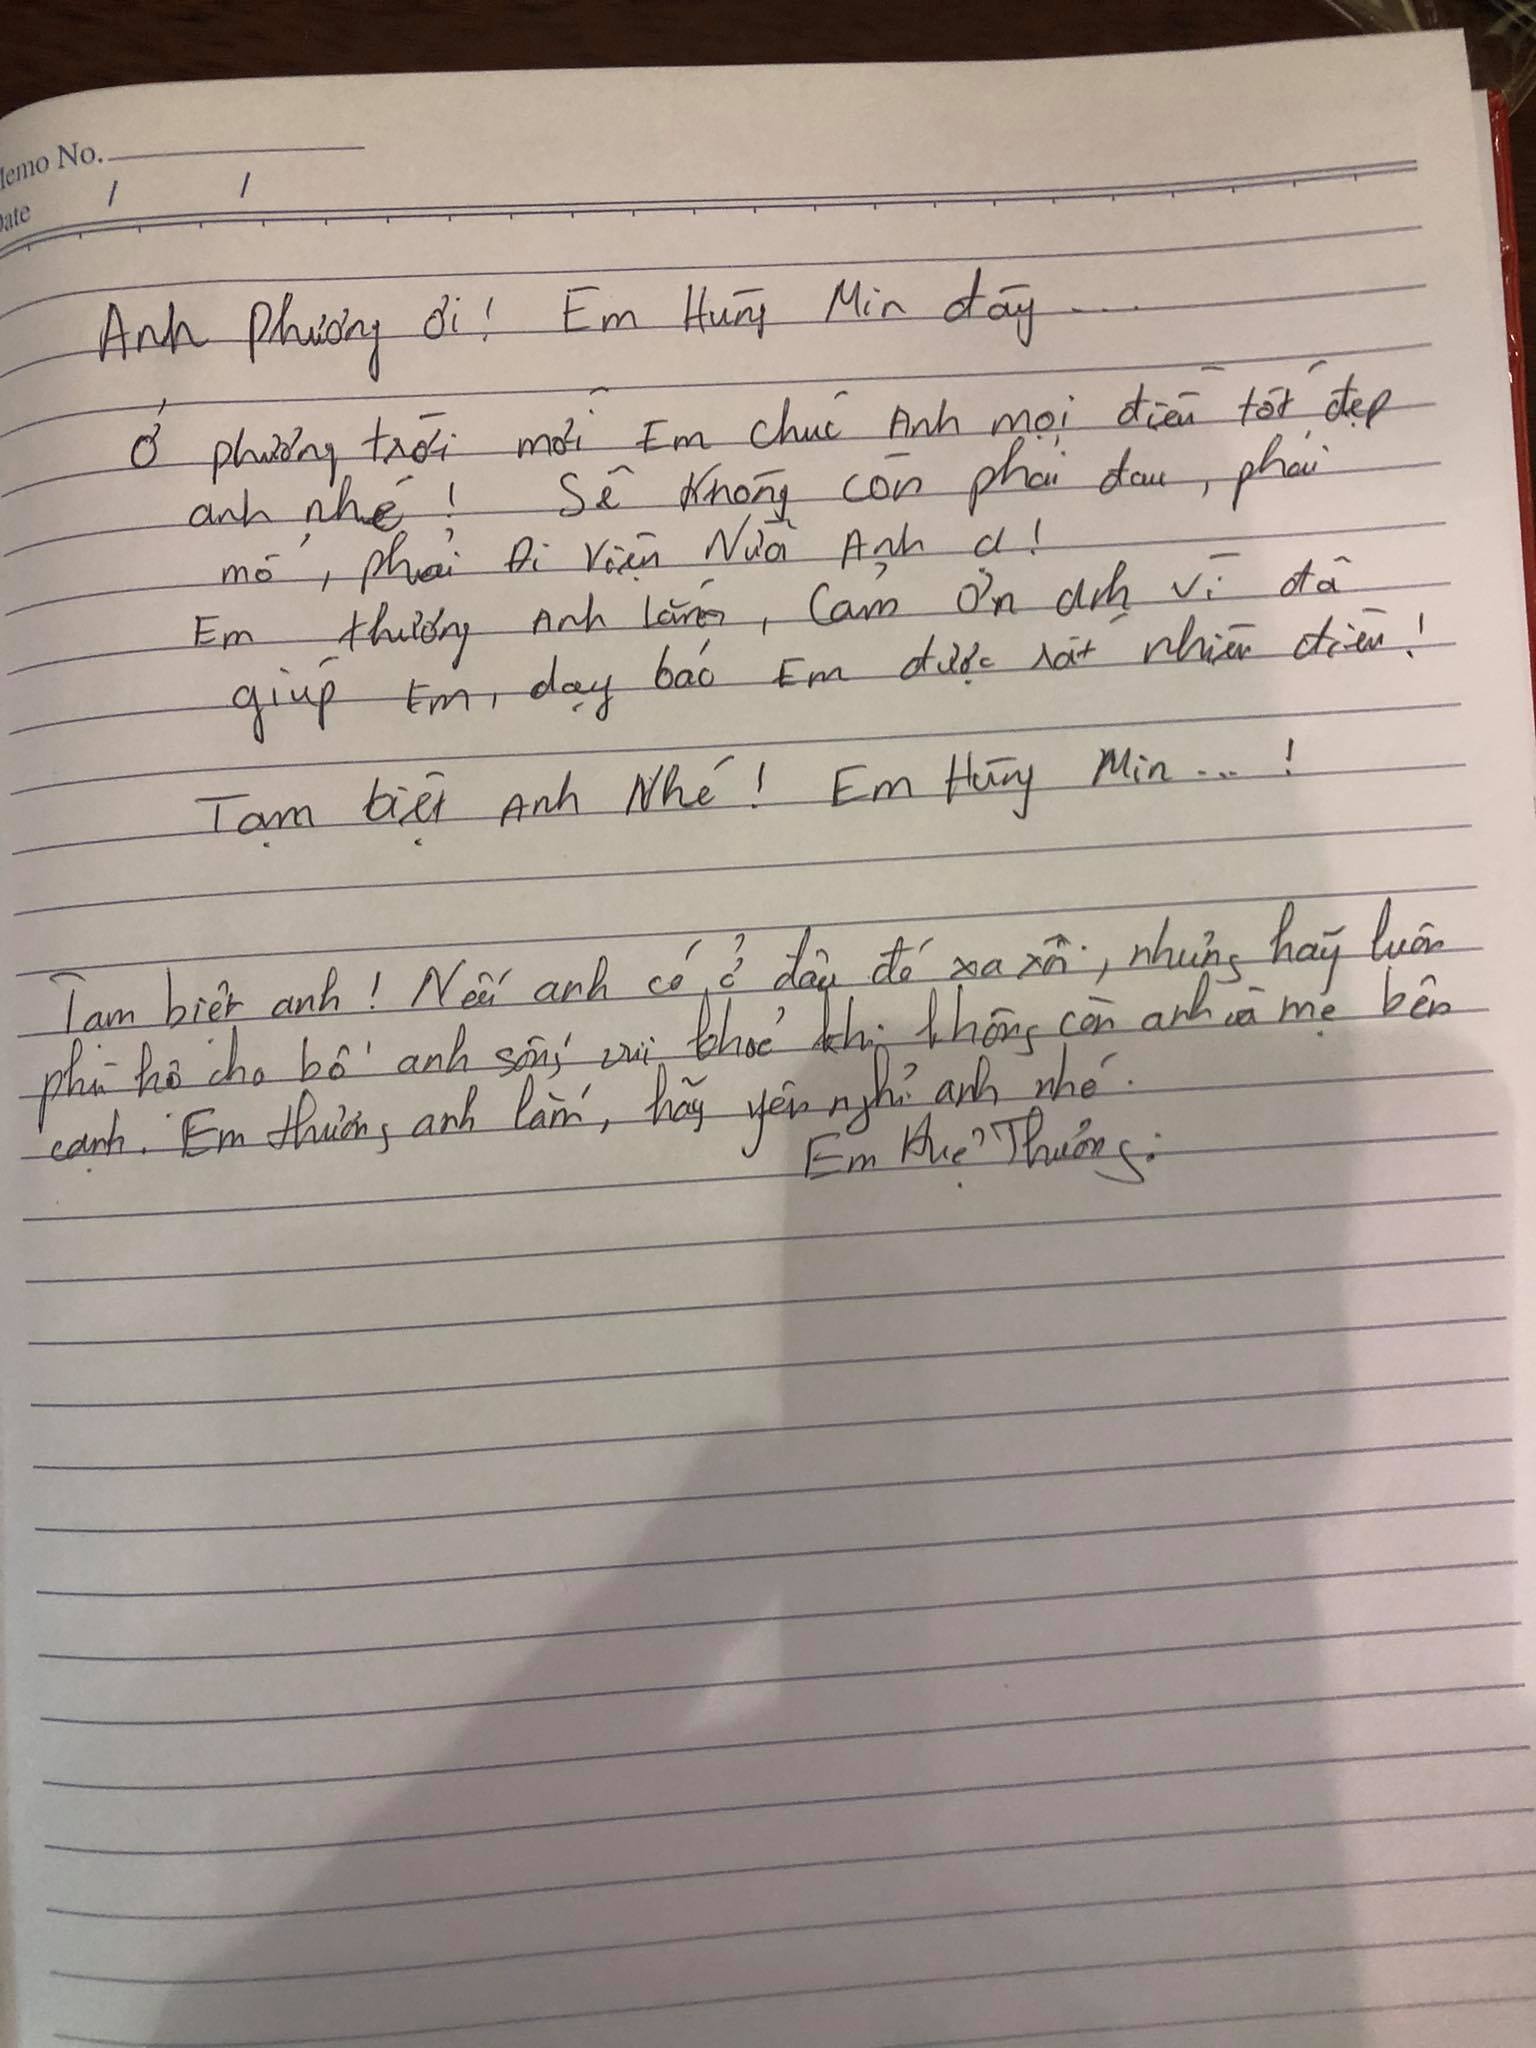 Memo No.
Date / /
Anh Phương ơi! Em Hùng Min đây ....
Ở phương trời mới Em chúc Anh mọi điều tốt đẹp
anh nhé! Sẽ không còn phải đau, phải
mổ, phải Đi Viện Nữa Anh ạ!
Em thương Anh lắm, Cảm Ơn anh vì đã
giúp Em, dạy bảo Em được rất nhiều điều!
Tạm biệt Anh Nhé! Em Hùng Min ... !
Tạm biệt anh! Nếu anh có ở đâu đó xa xôi, nhưng hãy luôn
phù hộ cho bố anh sống vui khoẻ khi không còn anh và mẹ bên
cạnh. Em thương anh lắm, hãy yên nghỉ anh nhé.
Em Thưởng.